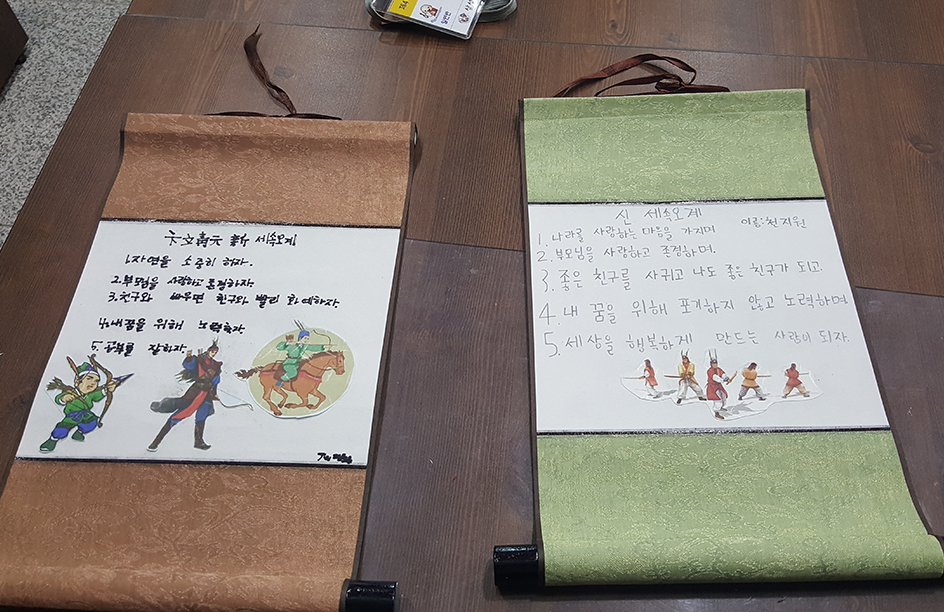 新 세속오계
1. 자연을 소중히 하자.
2. 부모님을 사랑하고 존경하자
3. 친구와 싸우면 친구와 빨리 화해하자
4. 내 꿈을 위해 노력하자
5. 공부를 잘하자
신 세속오계
이름: 천지원
1. 나라를 사랑하는 마음을 가지며
2. 부모님을 사랑하고 존경하며.
3. 좋은 친구를 사귀고 나도 좋은 친구가 되고.
4. 내 꿈을 위해 포기하지 않고 노력하며
5. 세상을 행복하게 만드는 사람이 되자.